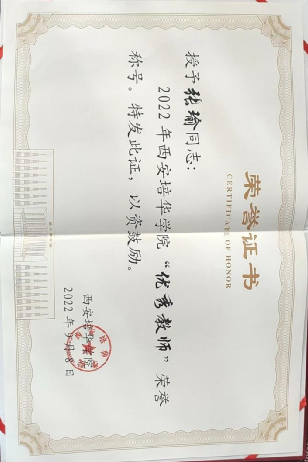 荣誉证书
CERTIFICATE OF HONOR
授予张瑜同志:
2022年西安培华学院“优秀教师”荣誉
称号。特发此证,以资鼓励。
西安培华学院
2022年9月8日